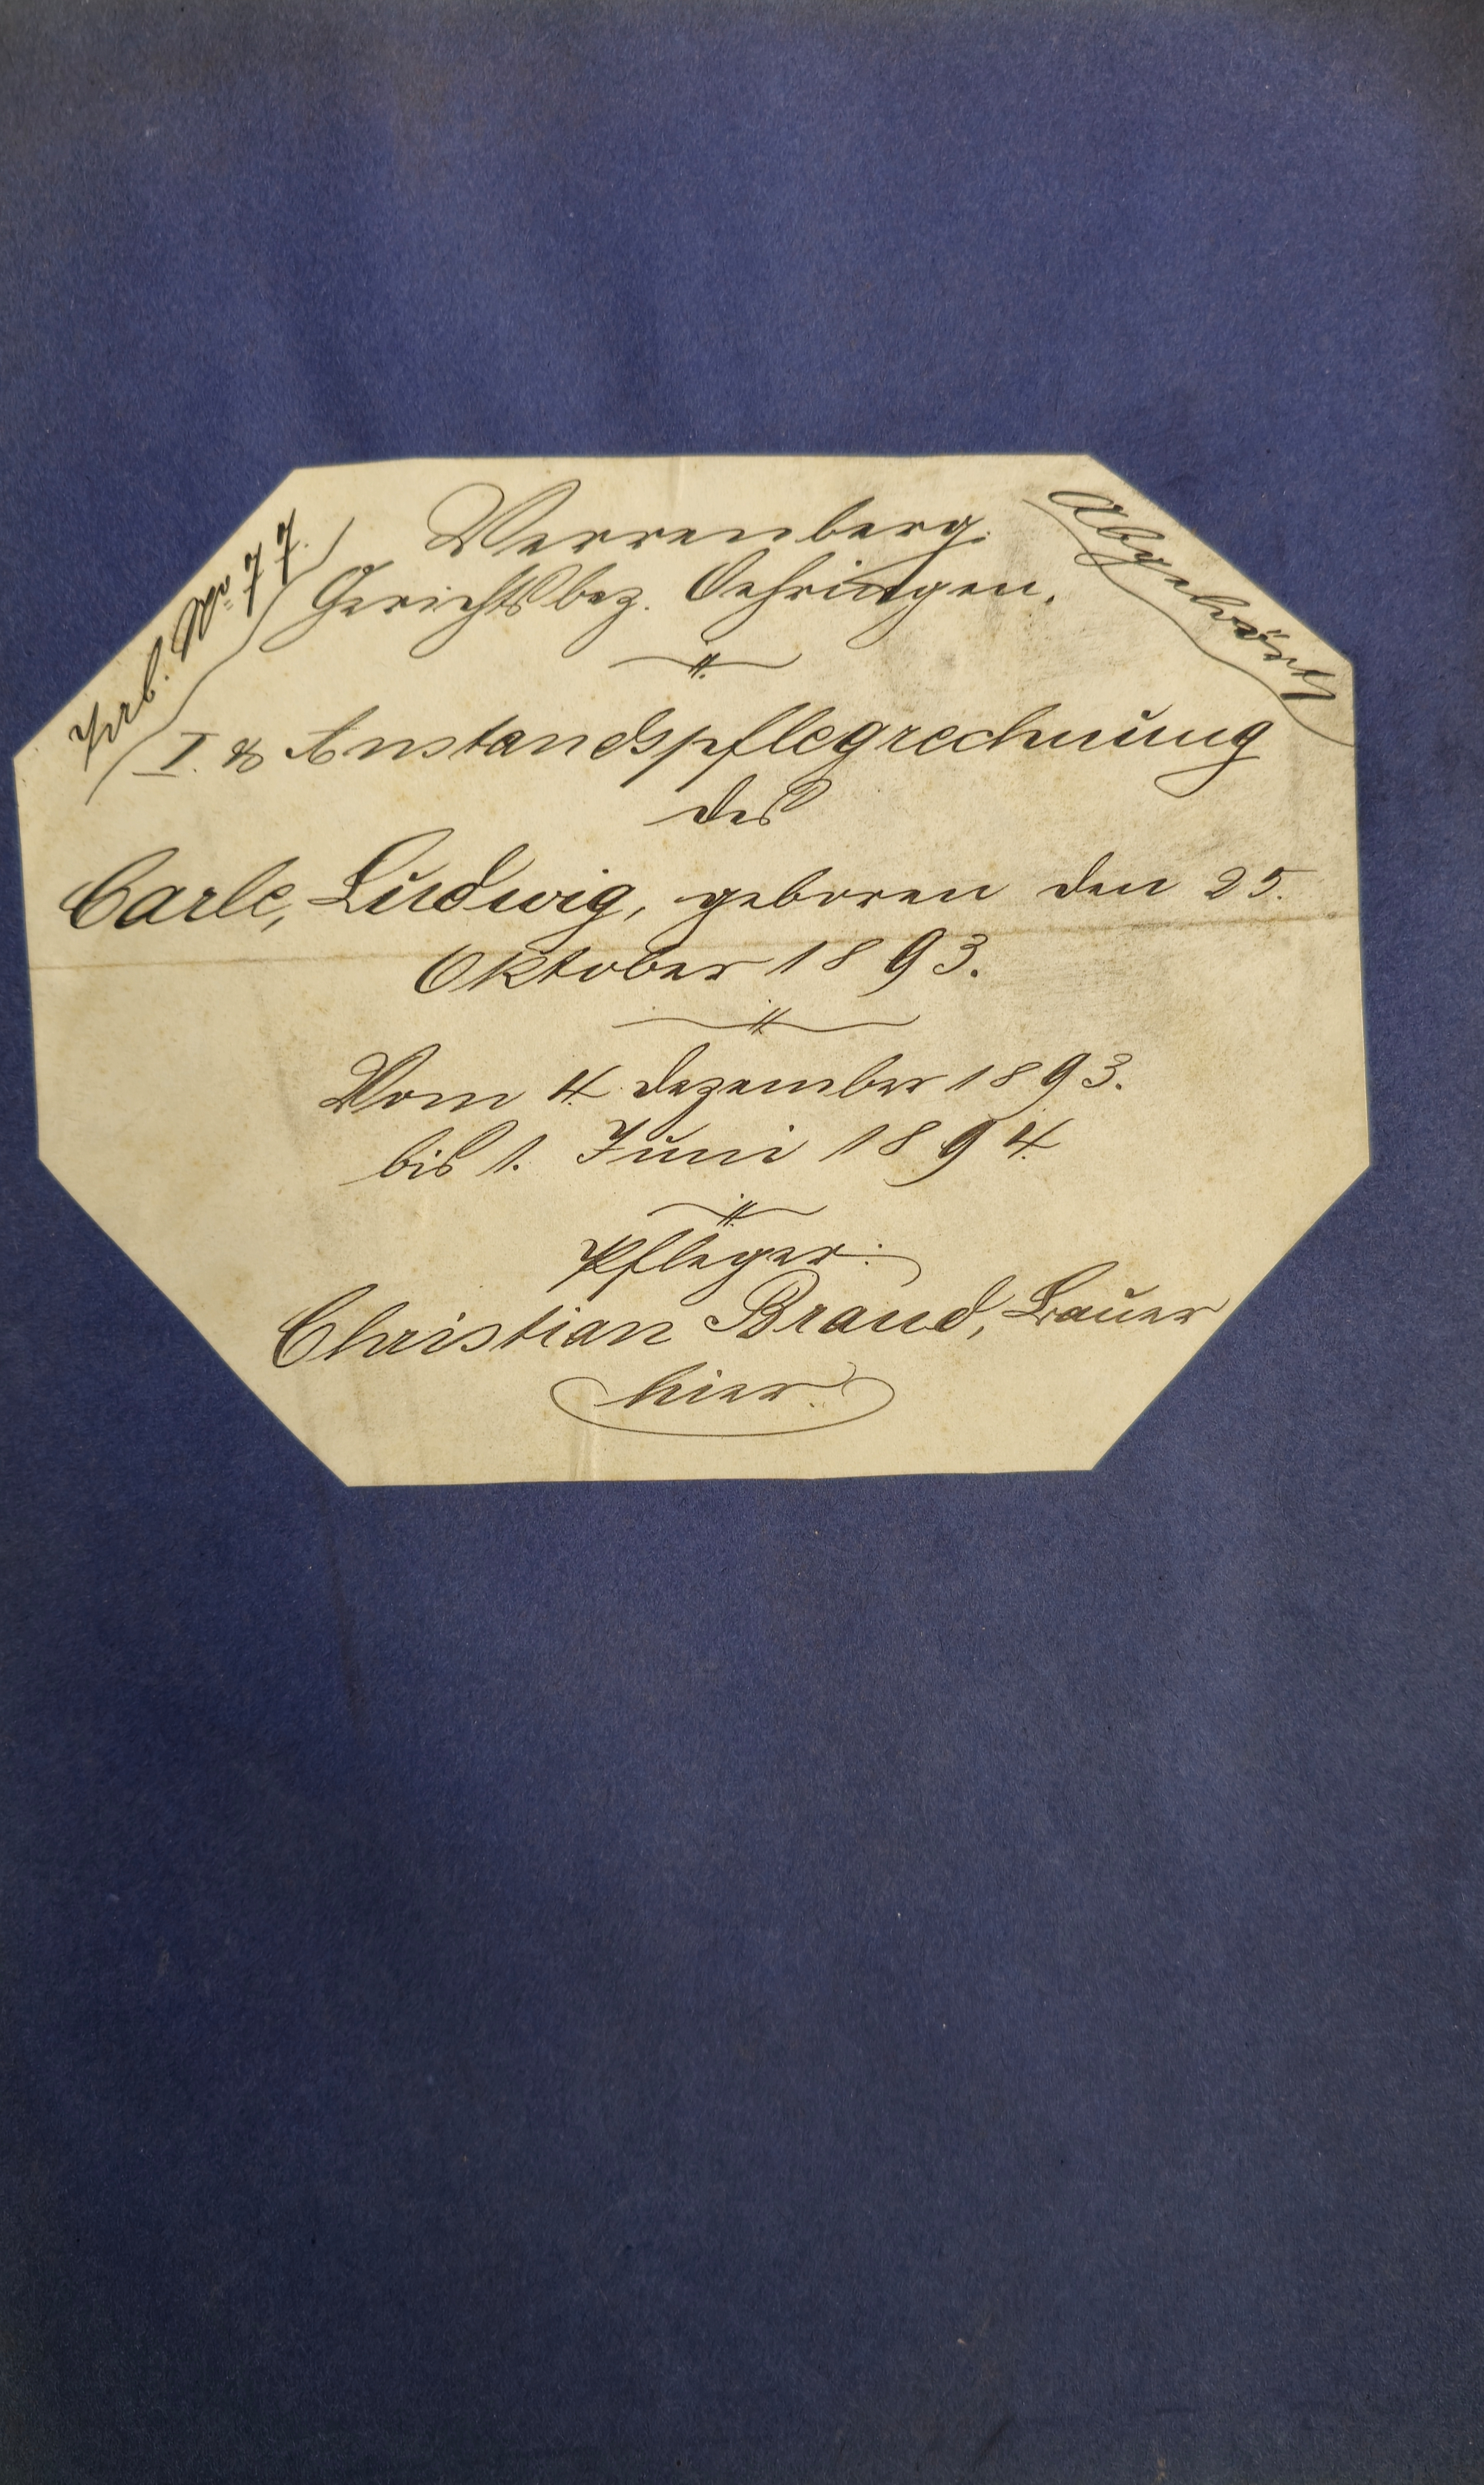 Verrenberg.
Gerichtsbez. Oehringen.
Nro. 77.
Abgehört
I. & Anstandspflegrechnung
des
Carle, Ludwig, geboren den 25.
Oktober 1893.
Vom 4. Dezember 1893.
bis 1. Juni 1894.
Pfleger:
Christian Braud, Bauer
hier.